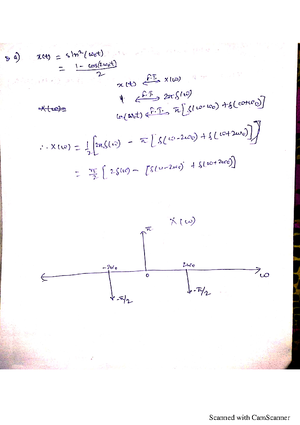 3 a) x(t) = sin²(ω₀t)
= 1 - cos(2ω₀t) / 2
x(t) ⟷ F.T. X(ω)
1 ⟷ F.T. 2πδ(ω)
cos(ω₀t) ⟷ F.T. π[δ(ω-ω₀) + δ(ω+ω₀)]
X(ω) =
∴ X(ω) = 1/2 [2πδ(ω) - π[δ(ω-2ω₀) + δ(ω+2ω₀)]]
= π/2 [2δ(ω) - [δ(ω-2ω₀) + δ(ω+2ω₀)]
X(ω)
π
-2ω₀ 0 2ω₀ ω
-π/2 -π/2
Scanned with CamScanner